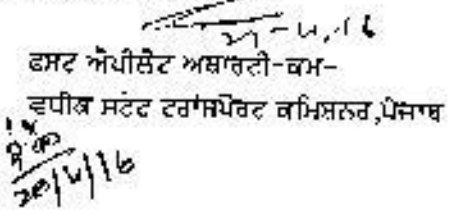 ਫਸਟ ਐਪੀਲੇਟ ਅਥਾਰਟੀ-ਕਮ-
ਵਧੀਕ ਸਟੇਟ ਟਰਾਂਸਪੋਰਟ ਕਮਿਸ਼ਨਰ,ਪੰਜਾਬ
20/4/16